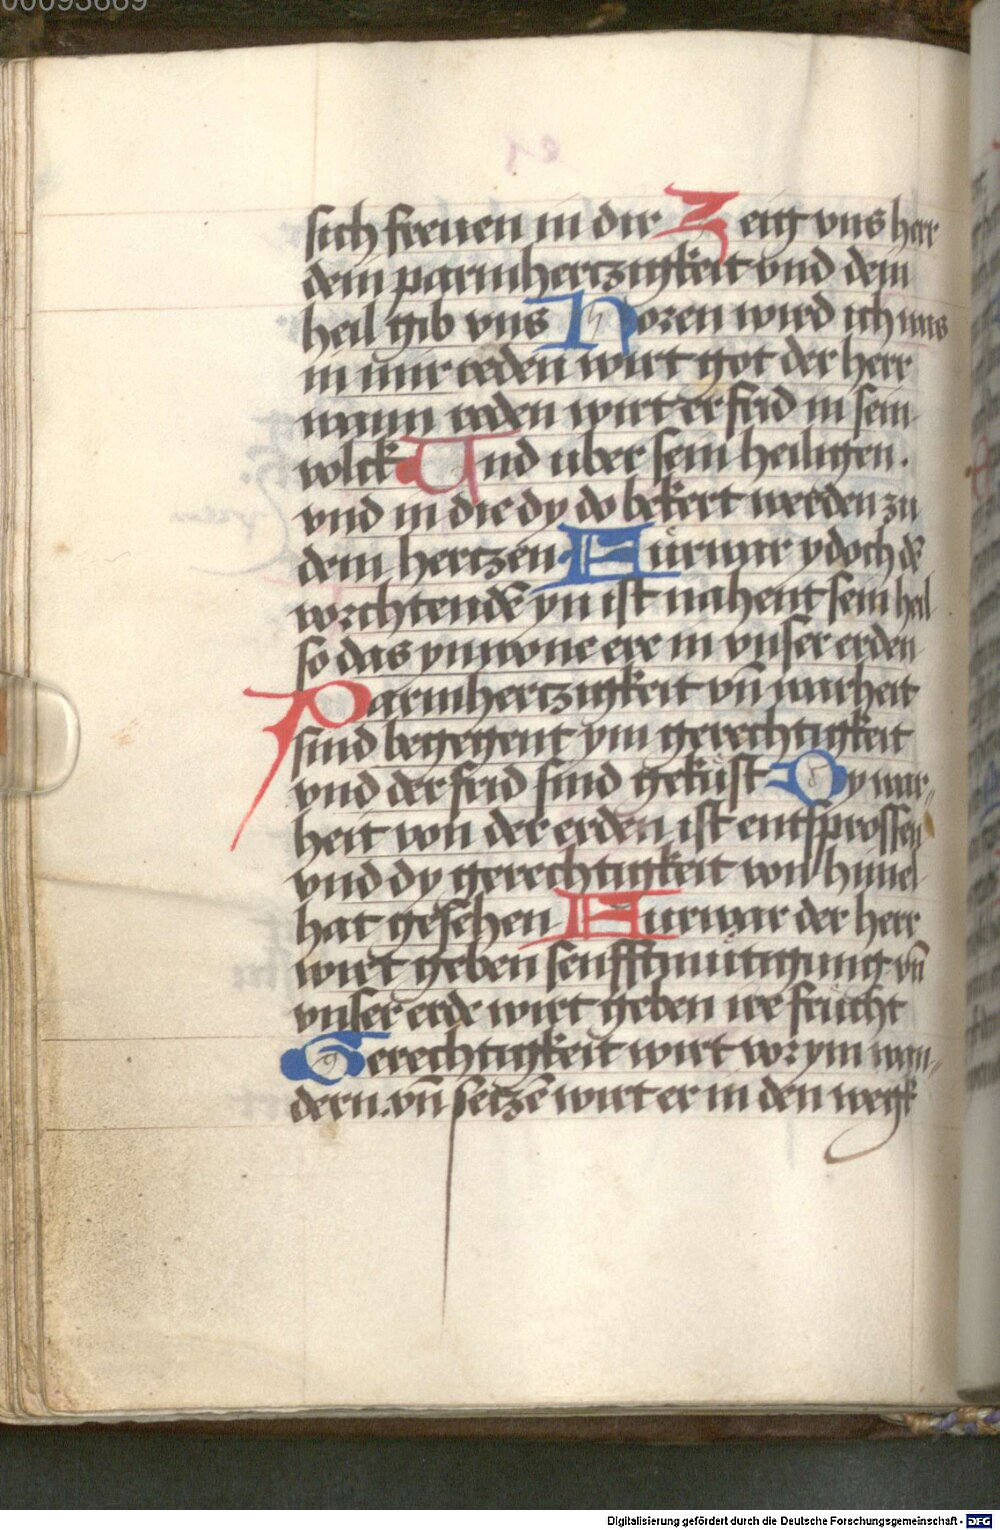 00093669
sich freuen in dir Zeig vns herr
dein parmhertzigkeit vnd dein
heil gib vns Horen wird ich was
in mir reden wirt got der herr
wann reden wirt er frid in sein
volck Und uber sein heiligen.
vnd in die dy do bekert werden zu
dem hertzen Furwar ydoch dē
vorchtendē yn ist nahent sein heil
so das ynwone ere in vnser erden
Parmhertzigkeit vn̄ warheit
sind begegent ym gerechtigkeit
vnd der frid sind gekust Dy war„
heit von der erden ist entsprossen
vnd dy gerechtigkeit von himel
hat gesehen Furwar der herr
wirt geben senfftmütigung vn̄
vnser erde wirt geben ire frücht
Gerechtigkeit wirt vor ym wan„
dern. vn̄ setzē wirt er in den wegk
Digitalisierung gefördert durch die Deutsche Forschungsgemeinschaft - DFG